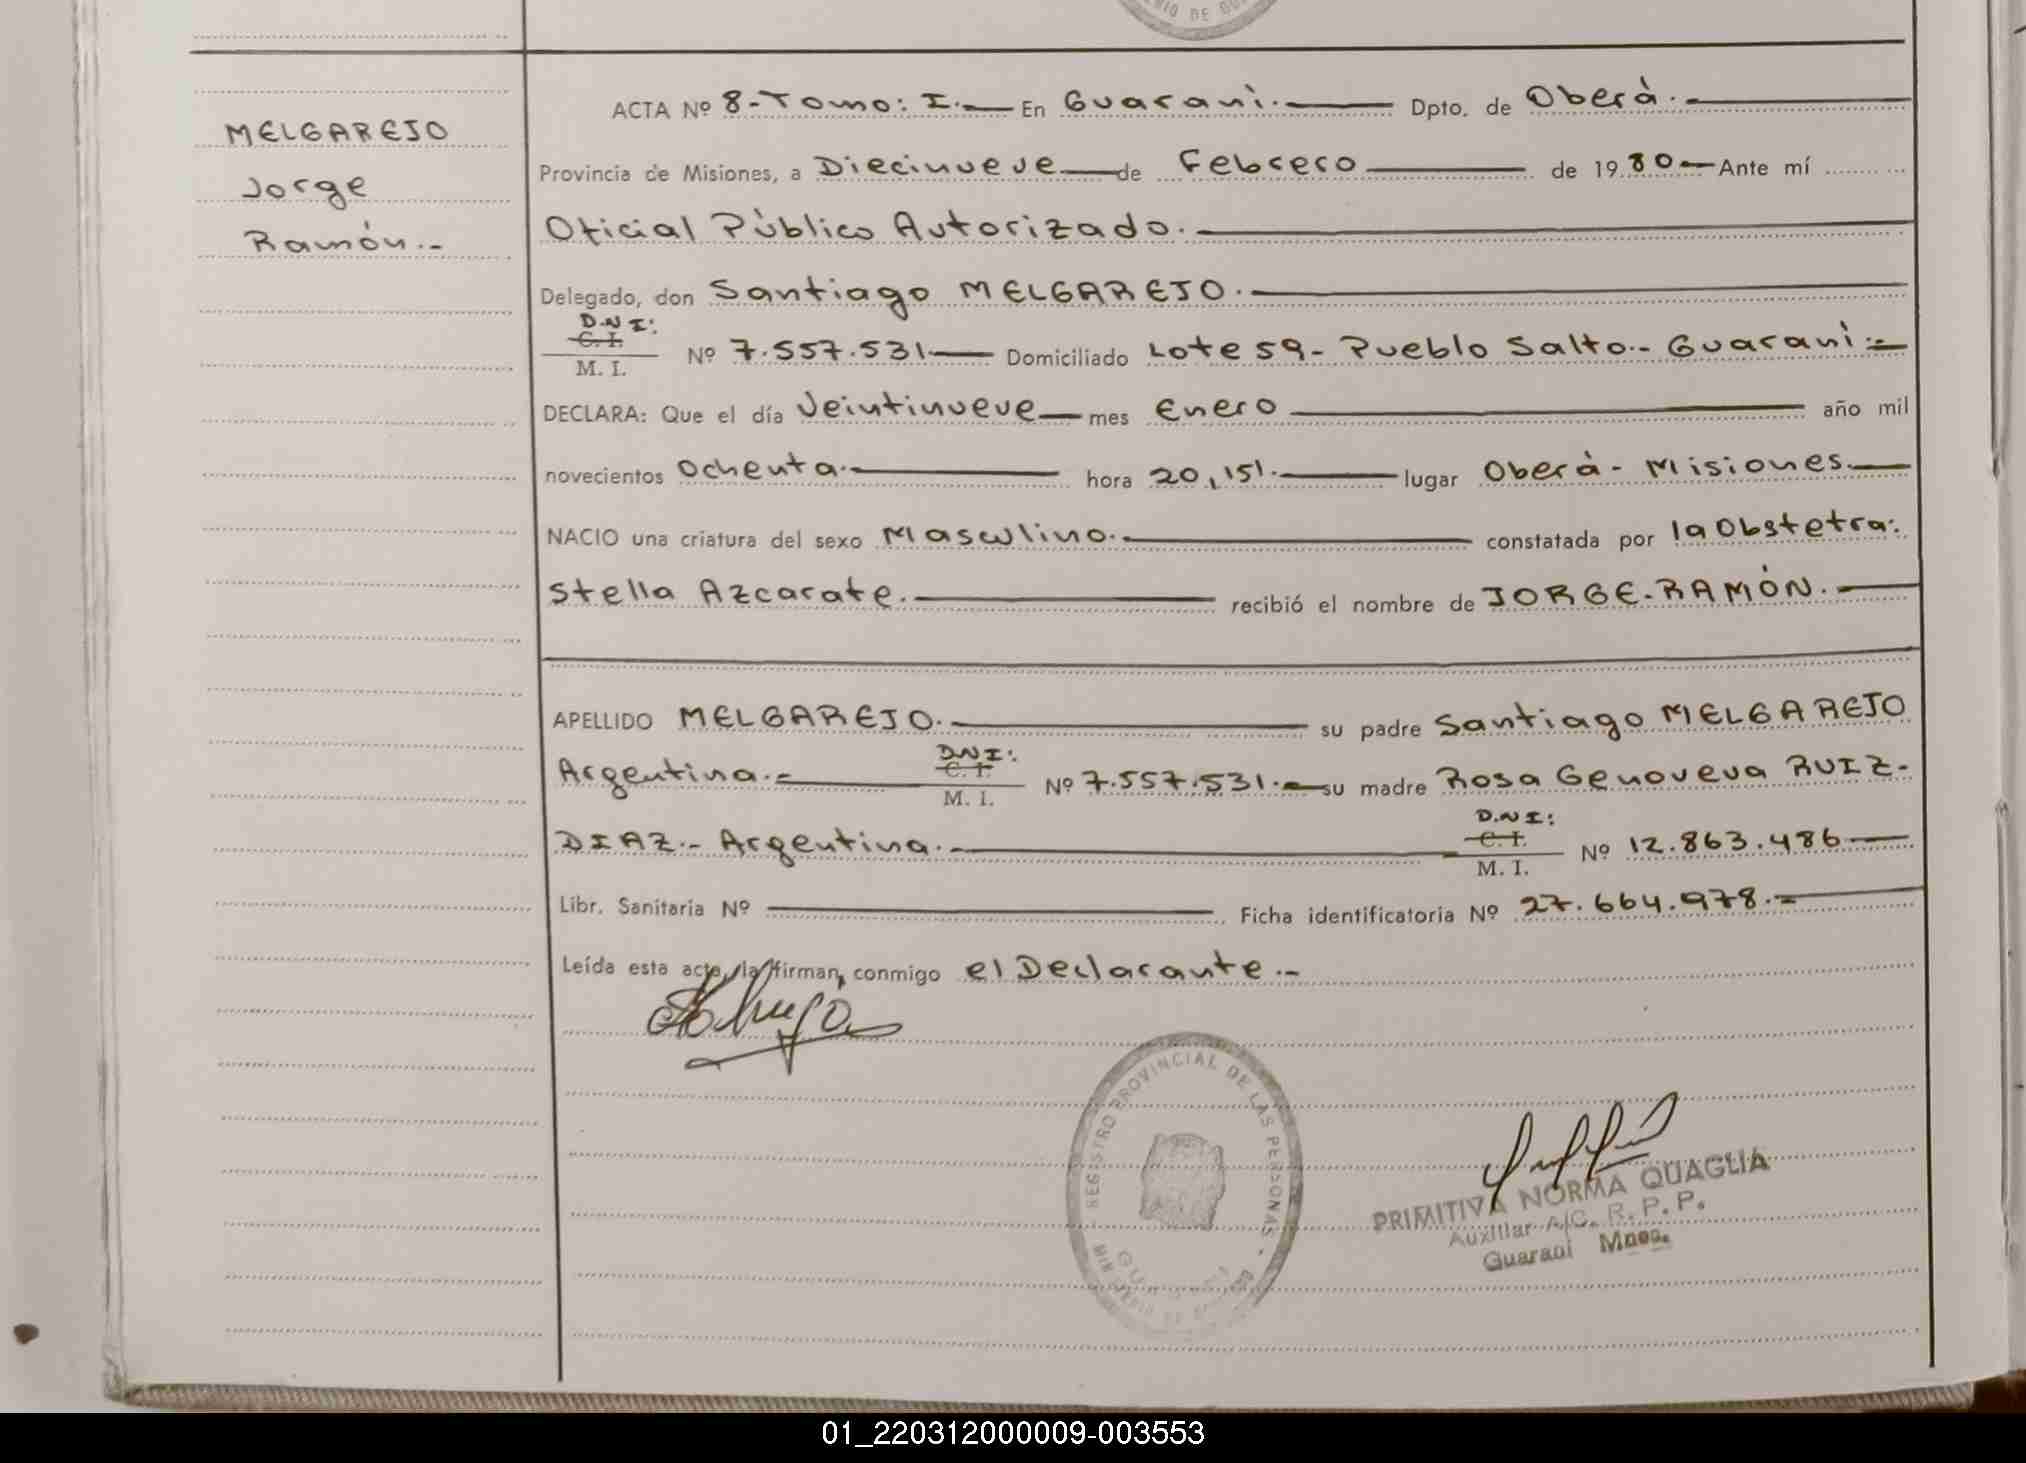 MELGAREJO
Jorge
Ramón.-
ACTA Nº 8-Tomo: I.- En Guaraní.- Dpto. de Oberá.-
Provincia de Misiones, a Diecinueve de Febrero de 1980- Ante mí
Oficial Público Autorizado.
Delegado, don Santiago MELGAREJO.
D.N.I:
C. I.
M. I. Nº 7.557.531 Domiciliado Lote 59- Pueblo Salto.- Guaraní.-
DECLARA: Que el día Veintinueve mes Enero año mil
novecientos Ochenta. hora 20,15'. lugar Oberá- Misiones.
NACIO una criatura del sexo Masculino. constatada por la Obstetra:
Stella Azcarate. recibió el nombre de JORGE-RAMÓN.
APELLIDO MELGAREJO. su padre Santiago MELGAREJO
Argentina.- D.N.I: C. I. M. I. Nº 7.557.531.- su madre Rosa Genoveva RUIZ-
DIAZ.- Argentina. D.N.I: C. I. M. I. Nº 12.863.486
Libr. Sanitaria Nº Ficha identificatoria Nº 27.664.978.-
Leída esta acta, la firman, conmigo el Declarante.-
REGISTRO PROVINCIAL DE LAS PERSONAS
PRIMITIVA NORMA QUAGLIA
Auxiliar A/C. R. P. P.
Guaraní Mnes.
01_220312000009-003553